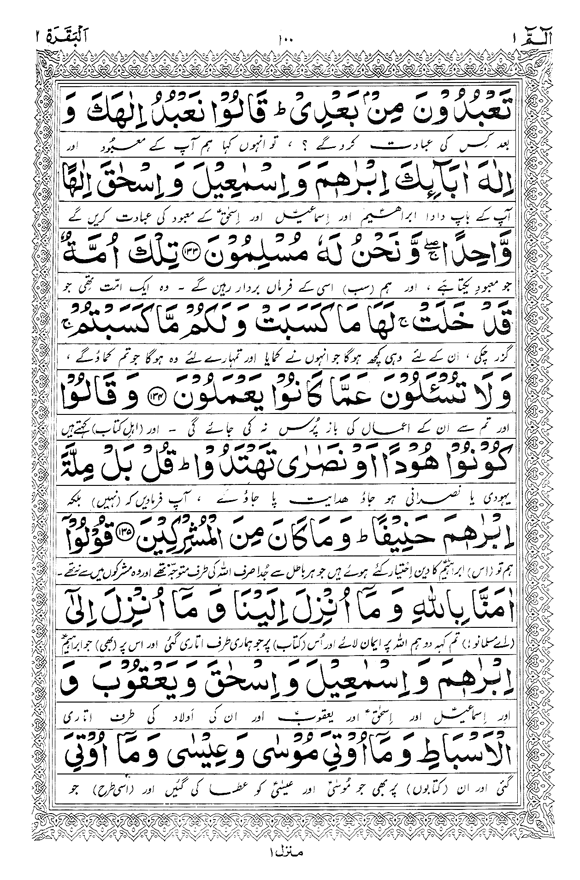 الٓمّٓ ١ ١٠٠ اَلْبَقَرَة ٢
تَعْبُدُوْنَ مِنْۢ بَعْدِیْ ؕ قَالُوْا نَعْبُدُ اِلٰهَكَ وَ
بعد کس کی عبادت کرو گے ؟ ، تو انہوں نے کہا ہم آپ کے معبود اور
اِلٰهَ اٰبَآئِكَ اِبْرٰهٖمَ وَ اِسْمٰعِیْلَ وَ اِسْحٰقَ اِلٰهًا
آپ کے باپ دادا ابراھیم اور اسماعیل اور اسحٰق کے معبود کی عبادت کریں گے
وَّاحِدًا ۖۚ وَّ نَحْنُ لَهٗ مُسْلِمُوْنَ ﴿۱۳۳﴾ تِلْكَ اُمَّةٌ
جو معبود یکتا ہے ، اور ہم (سب) اسی کے فرماں بردار رہیں گے ۔ وہ ایک امت تھی جو
قَدْ خَلَتْ ۚ لَهَا مَا كَسَبَتْ وَ لَكُمْ مَّا كَسَبْتُمْ ۚ
گزر چکی ، ان کے لئے وہی کچھ ہوگا جو انہوں نے کمایا اور تمہارے لئے وہ ہوگا جو تم کماؤ گے ،
وَ لَا تُسْـَٔلُوْنَ عَمَّا كَانُوْا یَعْمَلُوْنَ ﴿۱۳۴﴾ وَ قَالُوْا
اور تم سے ان کے اعمال کی باز پُرس نہ کی جائے گی ۔ اور (اہلِ کتاب) کہتے ہیں
كُوْنُوْا هُوْدًا اَوْ نَصٰرٰی تَهْتَدُوْا ؕ قُلْ بَلْ مِلَّةَ
یہودی یا نصرانی ہو جاؤ ھدایت پا جاؤ گے ، آپ فرمادیں کہ (نہیں) بلکہ
اِبْرٰهٖمَ حَنِیْفًا ؕ وَ مَا كَانَ مِنَ الْمُشْرِكِیْنَ ﴿۱۳۵﴾ قُوْلُوْۤا
ہم تو (اس) ابراہیمؑ کا دین اختیار کئے ہوئے ہیں جو ہر باطل سے جُدا صرف اللہ کی طرف متوجہ تھے اور وہ مشرکوں میں سے نہ تھے ۔
اٰمَنَّا بِاللّٰهِ وَ مَاۤ اُنْزِلَ اِلَیْنَا وَ مَاۤ اُنْزِلَ اِلٰۤی
(اے مسلمانو !) تم کہہ دو ہم اللہ پر ایمان لائے اور اُس (کتاب) پر جو ہماری طرف اتاری گئی اور اس پر (بھی) جو ابراہیمؑ
اِبْرٰهٖمَ وَ اِسْمٰعِیْلَ وَ اِسْحٰقَ وَ یَعْقُوْبَ وَ
اور اسماعیل اور اسحٰقؑ اور یعقوبؑ اور ان کی اولاد کی طرف اتاری
الْاَسْبَاطِ وَ مَاۤ اُوْتِیَ مُوْسٰی وَ عِیْسٰی وَ مَاۤ اُوْتِیَ
گئی اور ان (کتابوں) پر بھی جو مُوسٰیؑ اور عیسٰیؑ کو عطا کی گئیں اور (اسی طرح) جو
منزل ١